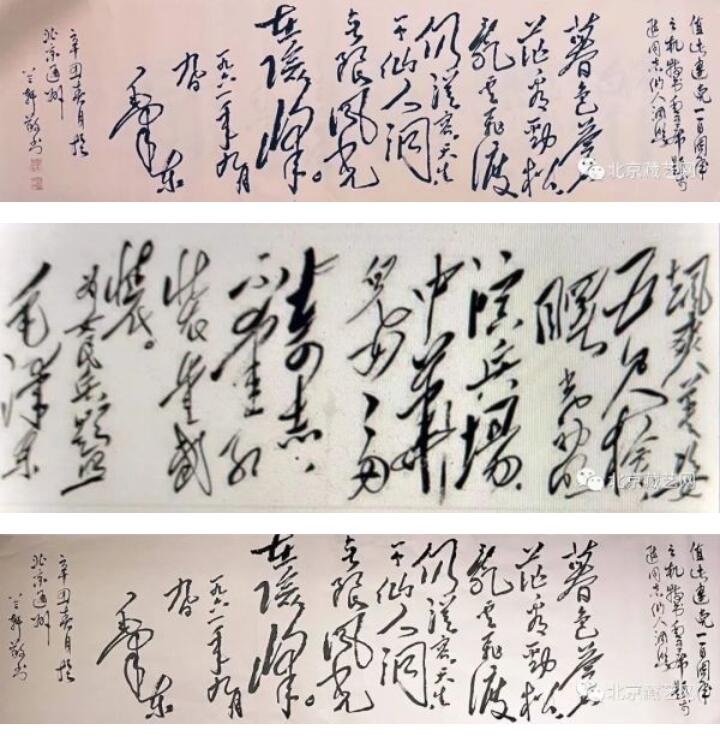 值此建党一百周年
之机特书毛主席题李
进同志仙人洞照
暮色苍
茫看劲松
乱云飞渡
仍從容天生
一个仙人洞
无限风光
在险峰。
一九六一年九月
九日
毛泽东
辛丑春月於
北京通州
兰轩敬书
北京藏艺网
颯爽英姿
五尺槍
曙光初照
演兵場
中華
兒女多
奇志
不愛紅
裝愛武
裝。
为女民兵题照
毛泽东
北京藏艺网
值此建党一百周年
之机特书毛主席题李
进同志仙人洞照
暮色苍
茫看劲松
乱云飞渡
仍從容天生
一个仙人洞
无限风光
在险峰。
一九六一年九月
九日
毛泽东
辛丑春月於
北京通州
兰轩敬书
北京藏艺网